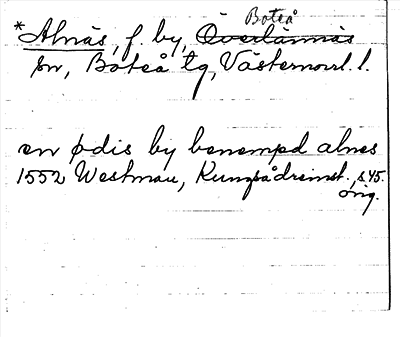 Boteå
*Alnäs, f. by, Överlännäs
sn, Boteå tg, Västernorrl. l.
en ødis by benempd alnes
1552 Westman, Kungsådreinst., s 45.
orig.